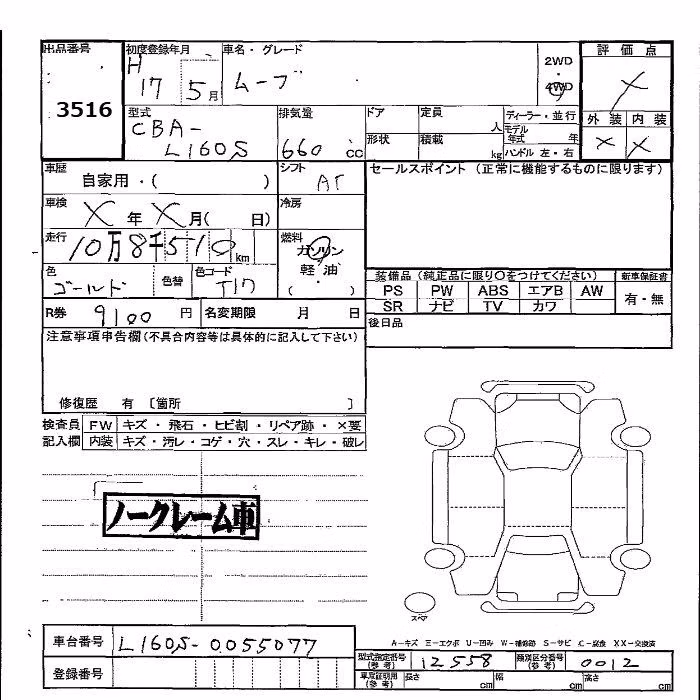 出品番号 初度登録年月 車名・グレード 2WD 評価点
3516 H 17 5月 ムーブ 4WD ×
型式 排気量 ドア 定員 人 ディーラー・並行 外装 内装
CBA- L160S 660 cc 形状 積載 kg モデル年式 年 × ×
ハンドル 左・右
車歴 シフト セールスポイント (正常に機能するものに限ります)
自家用・( ) AT
車検 冷房
× 年 × 月( 日)
走行 燃料
10万8千510 km ガソリン
軽・油
色 色替 色コード ( ・ ) 装備品 (純正品に限り○をつけてください) 新車保証書
ゴールド T17 PS PW ABS エアB AW 有・無
SR ナビ TV カワ
R券 9100 円 名変期限 月 日 後日品
注意事項申告欄(不具合内容等は具体的に記入して下さい)
修復歴 有 〔箇所 〕
検査員 FW キズ・飛石・ヒビ割・リペア跡・×要
記入欄 内装 キズ・汚レ・コゲ・穴・スレ・キレ・破レ
ノークレーム車
スペア
A-キズ E-エクボ U-凹み W-補修跡 S-サビ C-腐食 XX-交換済
車台番号 L160S-0055077
型式指定番号(参考) 12558 類別区分番号(参考) 0012
登録番号
車庫証明用(参考) 長さ cm 幅 cm 高さ cm